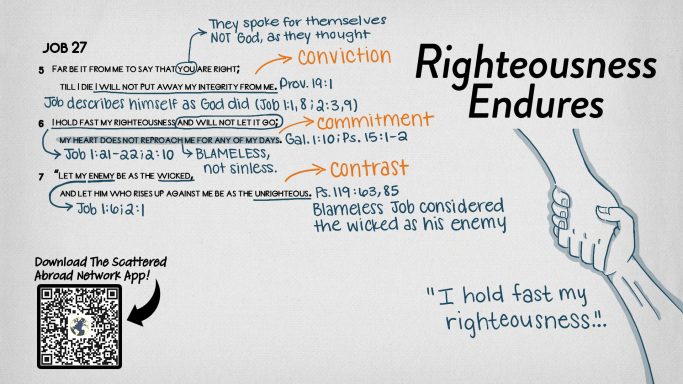 They spoke for themselves
NOT God, as they thought
JOB 27
conviction
5 FAR BE IT FROM ME TO SAY THAT YOU ARE RIGHT;
TILL I DIE I WILL NOT PUT AWAY MY INTEGRITY FROM ME. Prov. 19:1
Job describes himself as God did (Job 1:1,8; 2:3,9)
commitment
6 I HOLD FAST MY RIGHTEOUSNESS AND WILL NOT LET IT GO;
MY HEART DOES NOT REPROACH ME FOR ANY OF MY DAYS. Gal. 1:10; Ps. 15:1-2
Job 1:21-22; 2:10 BLAMELESS,
not sinless.
contrast
7 "LET MY ENEMY BE AS THE WICKED,
AND LET HIM WHO RISES UP AGAINST ME BE AS THE UNRIGHTEOUS. Ps. 119:63,85
Job 1:6; 2:1
Blameless Job considered
the wicked as his enemy
Righteousness
Endures
Download The Scattered
Abroad Network App!
"I hold fast my
righteousness...